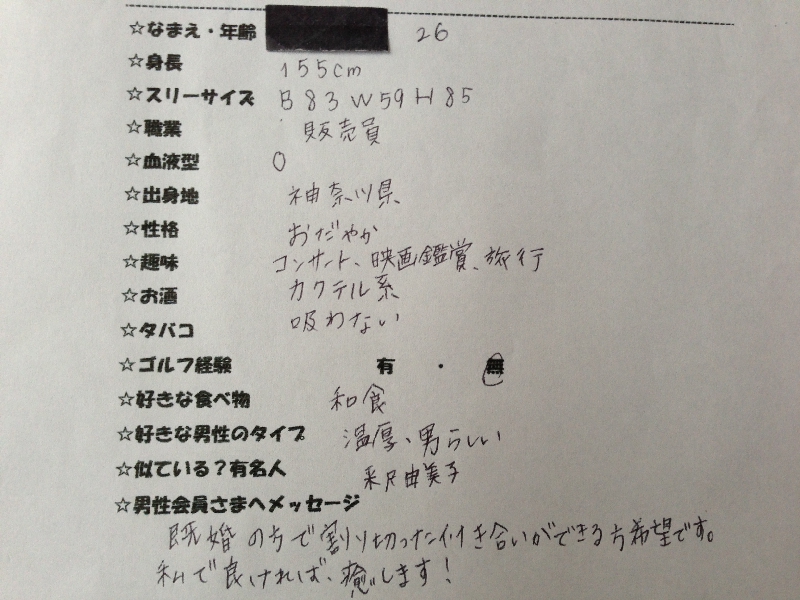 ☆なまえ・年齢 26
☆身長 155cm
☆スリーサイズ B83 W59 H85
☆職業 販売員
☆血液型 O
☆出身地 神奈川県
☆性格 おだやか
☆趣味 コンサート、映画鑑賞、旅行
☆お酒 カクテル系
☆タバコ 吸わない
☆ゴルフ経験 有 ・ 無
☆好きな食べ物 和食
☆好きな男性のタイプ 温厚、男らしい
☆似ている?有名人 釈由美子
☆男性会員さまへメッセージ
既婚の方で割り切った付き合いができる方希望です。
私で良ければ、癒します!